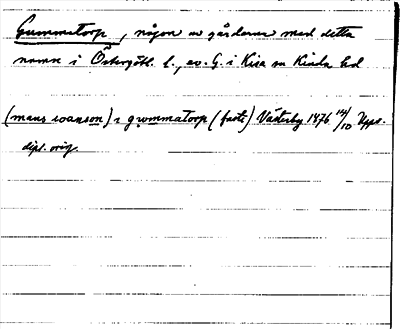 Grummatorp, någon av gårdarna med detta
namn i Östergötl. l., ev. G. i Kisa sn Kinda hd
(mans swanson) i grwmmatorp (faste) Västerby 1476 14/10 Upps.
dipl. orig.